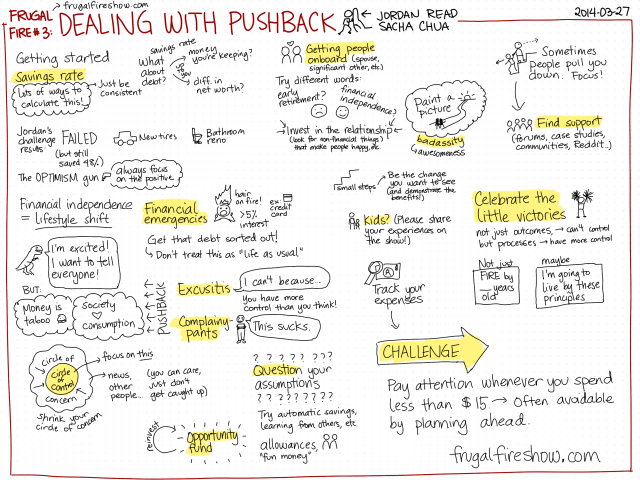 FRUGAL FIRE #3:
frugalfireshow.com
DEALING WITH PUSHBACK
JORDAN READ
SACHA CHUA
2014-03-27
Getting started
Savings rate
Lots of ways to
calculate this!
Just be
consistent
What
about
debt?
savings rate
money
you're keeping?
up to you
diff. in
net worth?
Jordan's
challenge
results
FAILED
(but still
saved 48%)
New tires
Bathroom
reno
The OPTIMISM gun
always focus
on the positive
Financial independence
= lifestyle shift
I'm excited!
I want to tell
everyone!
BUT:
Money is
taboo
Society
consumption
PUSHBACK
circle of
circle
of
control
concern
shrink your
circle of concern
focus on this
news,
other
people...
(you can care,
just don't
get caught up)
Financial
emergencies
hair
on fire!
>5%
interest
ex:
credit
card
Get that debt sorted out!
Don't treat this as "life as usual."
Excusitis
I can't because..
You have more
control than you think!
Complainy-
pants
This sucks.
? ? ? ? ? ? ?
Question your
assumptions
? ? ? ? ? ? ? ?
Try automatic savings,
learning from others, etc.
reinvest
Opportunity
fund
allowances,
"fun money"
Getting people
onboard (spouse,
significant other, etc)
Try different words:
early
retirement?
financial
independence?
Invest in the relationship
(look for non-financial things
that make people happy, etc.
Paint a
picture
badassity
awesomeness
small steps
Be the change
you want to see
(and demonstrate the
benefits!)
Kids? (Please share
your experiences on
the show!)
Track your
expenses
Sometimes
people pull you
down. Focus!
Find support
(forums, case studies,
communities, Reddit...)
Celebrate the
little victories
not just outcomes, → can't control
but processes → have more control
Not just
FIRE by
__ years
old
maybe
I'm going to
live by these
principles
CHALLENGE
Pay attention whenever you spend
less than $15. → Often avoidable
by planning ahead.
frugalfireshow.com